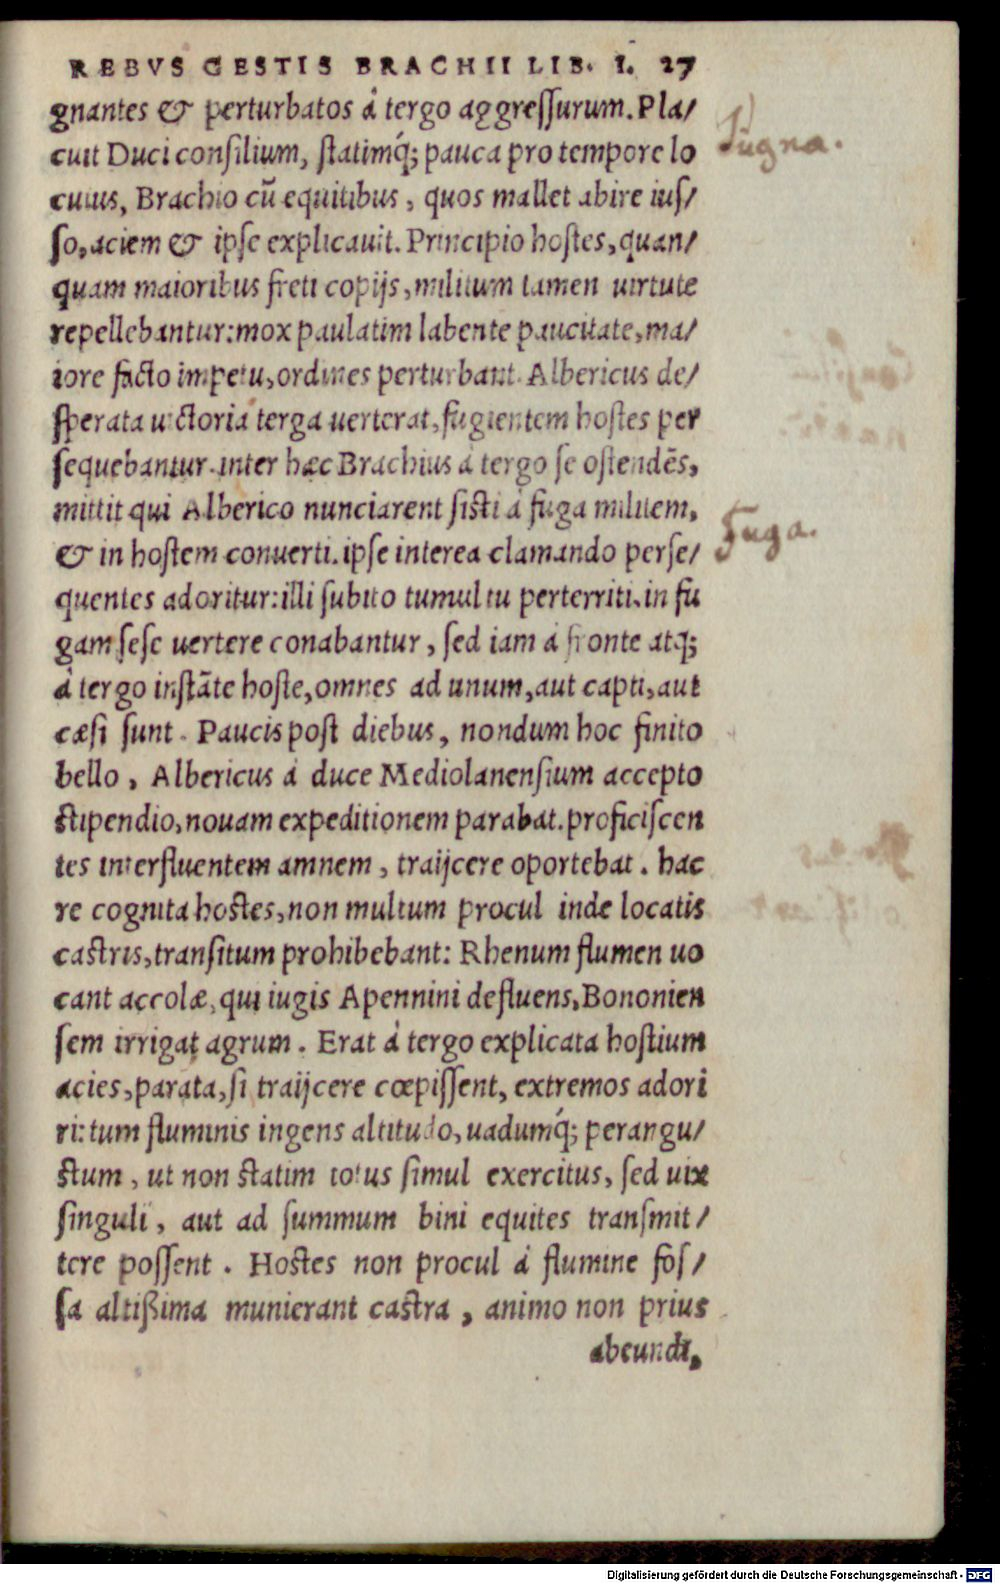 REBVS GESTIS BRACHII LIB. I. 27
gnantes & perturbatos à tergo aggreſſurum. Pla/
cuit Duci conſilium, ſtatimq́; pauca pro tempore lo
cutus, Brachio cū equitibus, quos mallet abire iuſ/
ſo, aciem & ipſe explicauit. Principio hoſtes, quan/
quam maioribus freti copijs, militum tamen uirtute
repellebantur: mox paulatim labente paucitate, ma/
iore facto impetu, ordines perturbant. Albericus de/
ſperata uictoria terga uerterat, fugientem hoſtes per
ſequebantur. inter hæc Brachius à tergo ſe oſtendēs,
mittit qui Alberico nunciarent ſiſti à fuga militem,
& in hoſtem conuerti. ipſe interea clamando perſe/
quentes adoritur: illi ſubito tumultu perterriti, in fu
gam ſeſe uertere conabantur, ſed iam à fronte atq;
à tergo inſtāte hoſte, omnes ad unum, aut capti, aut
cæſi ſunt. Paucis poſt diebus, nondum hoc finito
bello, Albericus à duce Mediolanenſium accepto
ſtipendio, nouam expeditionem parabat. proficiſcen
tes interfluentem amnem, traijcere oportebat. hac
re cognita hoſtes, non multum procul inde locatis
caſtris, tranſitum prohibebant: Rhenum flumen uo
cant accolæ, qui iugis Apennini defluens, Bononien
ſem irrigat agrum. Erat à tergo explicata hoſtium
acies, parata, ſi traijcere cœpiſſent, extremos adori
ri: tum fluminis ingens altitudo, uadumq́; perangu/
ſtum, ut non ſtatim totus ſimul exercitus, ſed uix
ſinguli, aut ad ſummum bini equites tranſmit/
tere poſſent. Hoſtes non procul à flumine foſ/
ſa altiſsima munierant caſtra, animo non prius
abeundi,
Pugna.
Fuga.
Digitalisierung gefördert durch die Deutsche Forschungsgemeinschaft - DFG